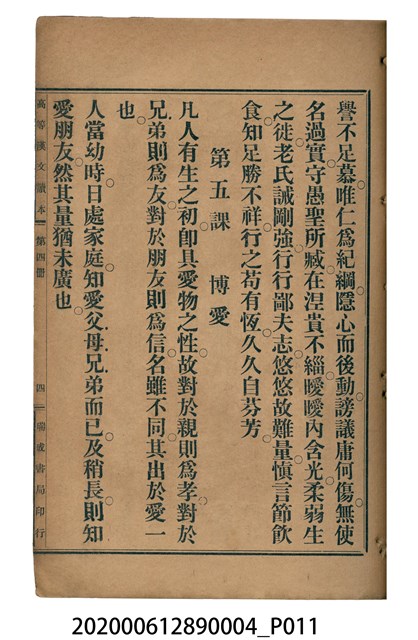 譽不足慕唯仁爲紀綱隱心而後動謗議庸何傷無使
名過實守愚聖所臧在涅貴不緇曖曖內含光柔弱生
之徒老氏誡剛強行行鄙夫志悠悠故難量慎言節飲
食知足勝不祥行之苟有恆久久自芬芳
第五課 博愛
凡人有生之初卽具愛物之性故對於親則爲孝對於
兄弟則爲友對於朋友則爲信名雖不同其出於愛一
也
人當幼時日處家庭知愛父母兄弟而已及稍長則知
愛朋友然其量猶未廣也
高等漢文讀本 第四冊 四 蘭記書局印行
202000612890004_P011